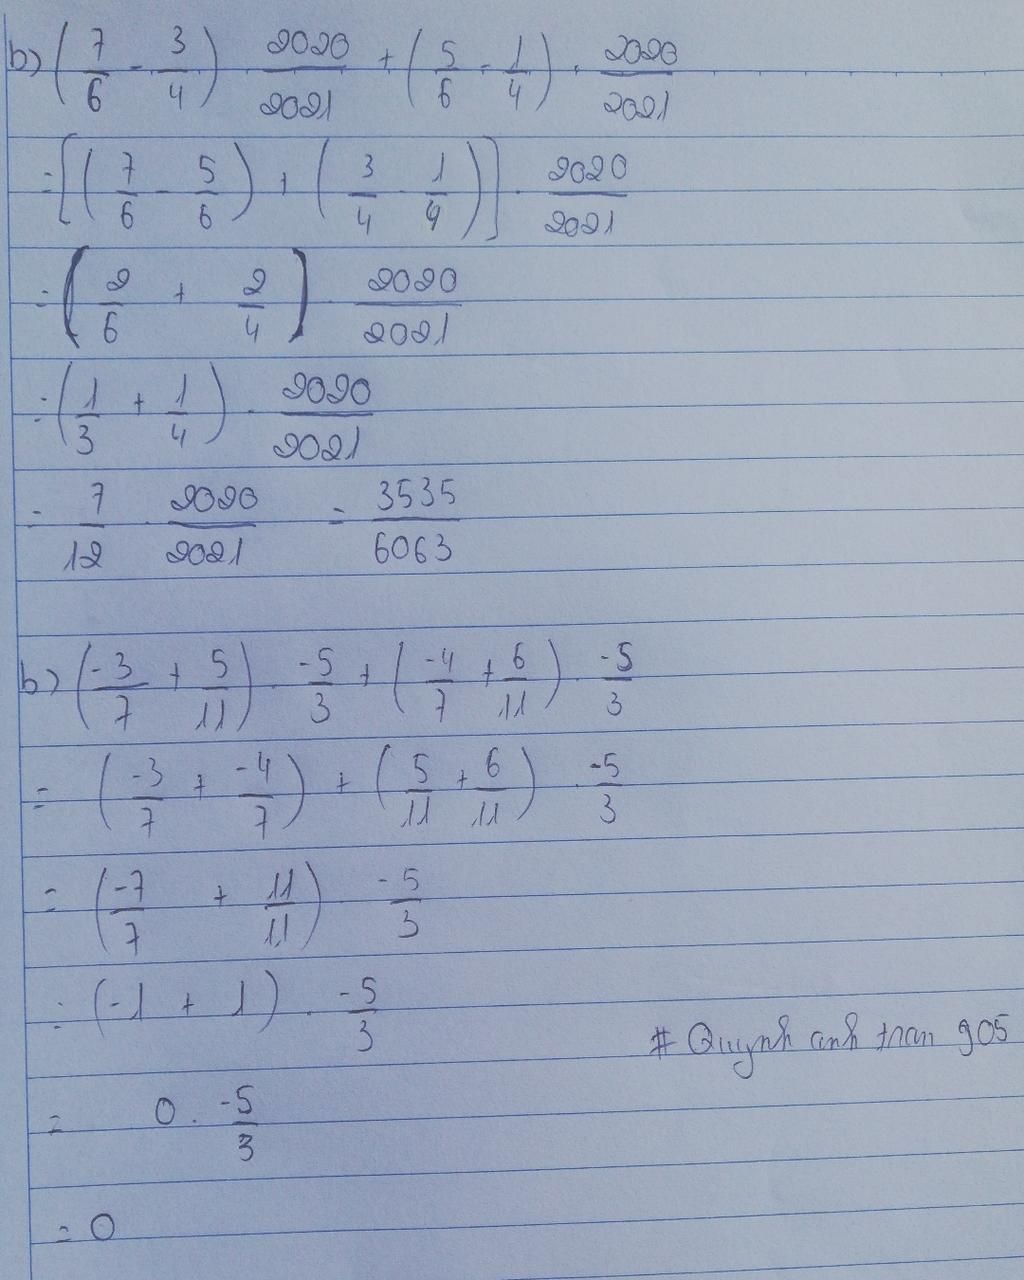 b) (7/6 - 3/4) 2020/2021 + (5/6 - 1/4) . 2020/2021
= [(7/6 - 5/6) + (3/4 - 1/4)] . 2020/2021
= (2/6 + 2/4) . 2020/2021
= (1/3 + 1/4) . 2020/2021
= 7/12 . 2020/2021 = 3535/6063
b) (-3/7 + 5/11) . -5/3 + (-4/7 + 6/11) . -5/3
= (-3/7 + -4/7) + (5/11 + 6/11) . -5/3
= (-7/7 + 11/11) . -5/3
= (-1 + 1) . -5/3
# Quynh anh tran 905
= 0 . -5/3
= 0